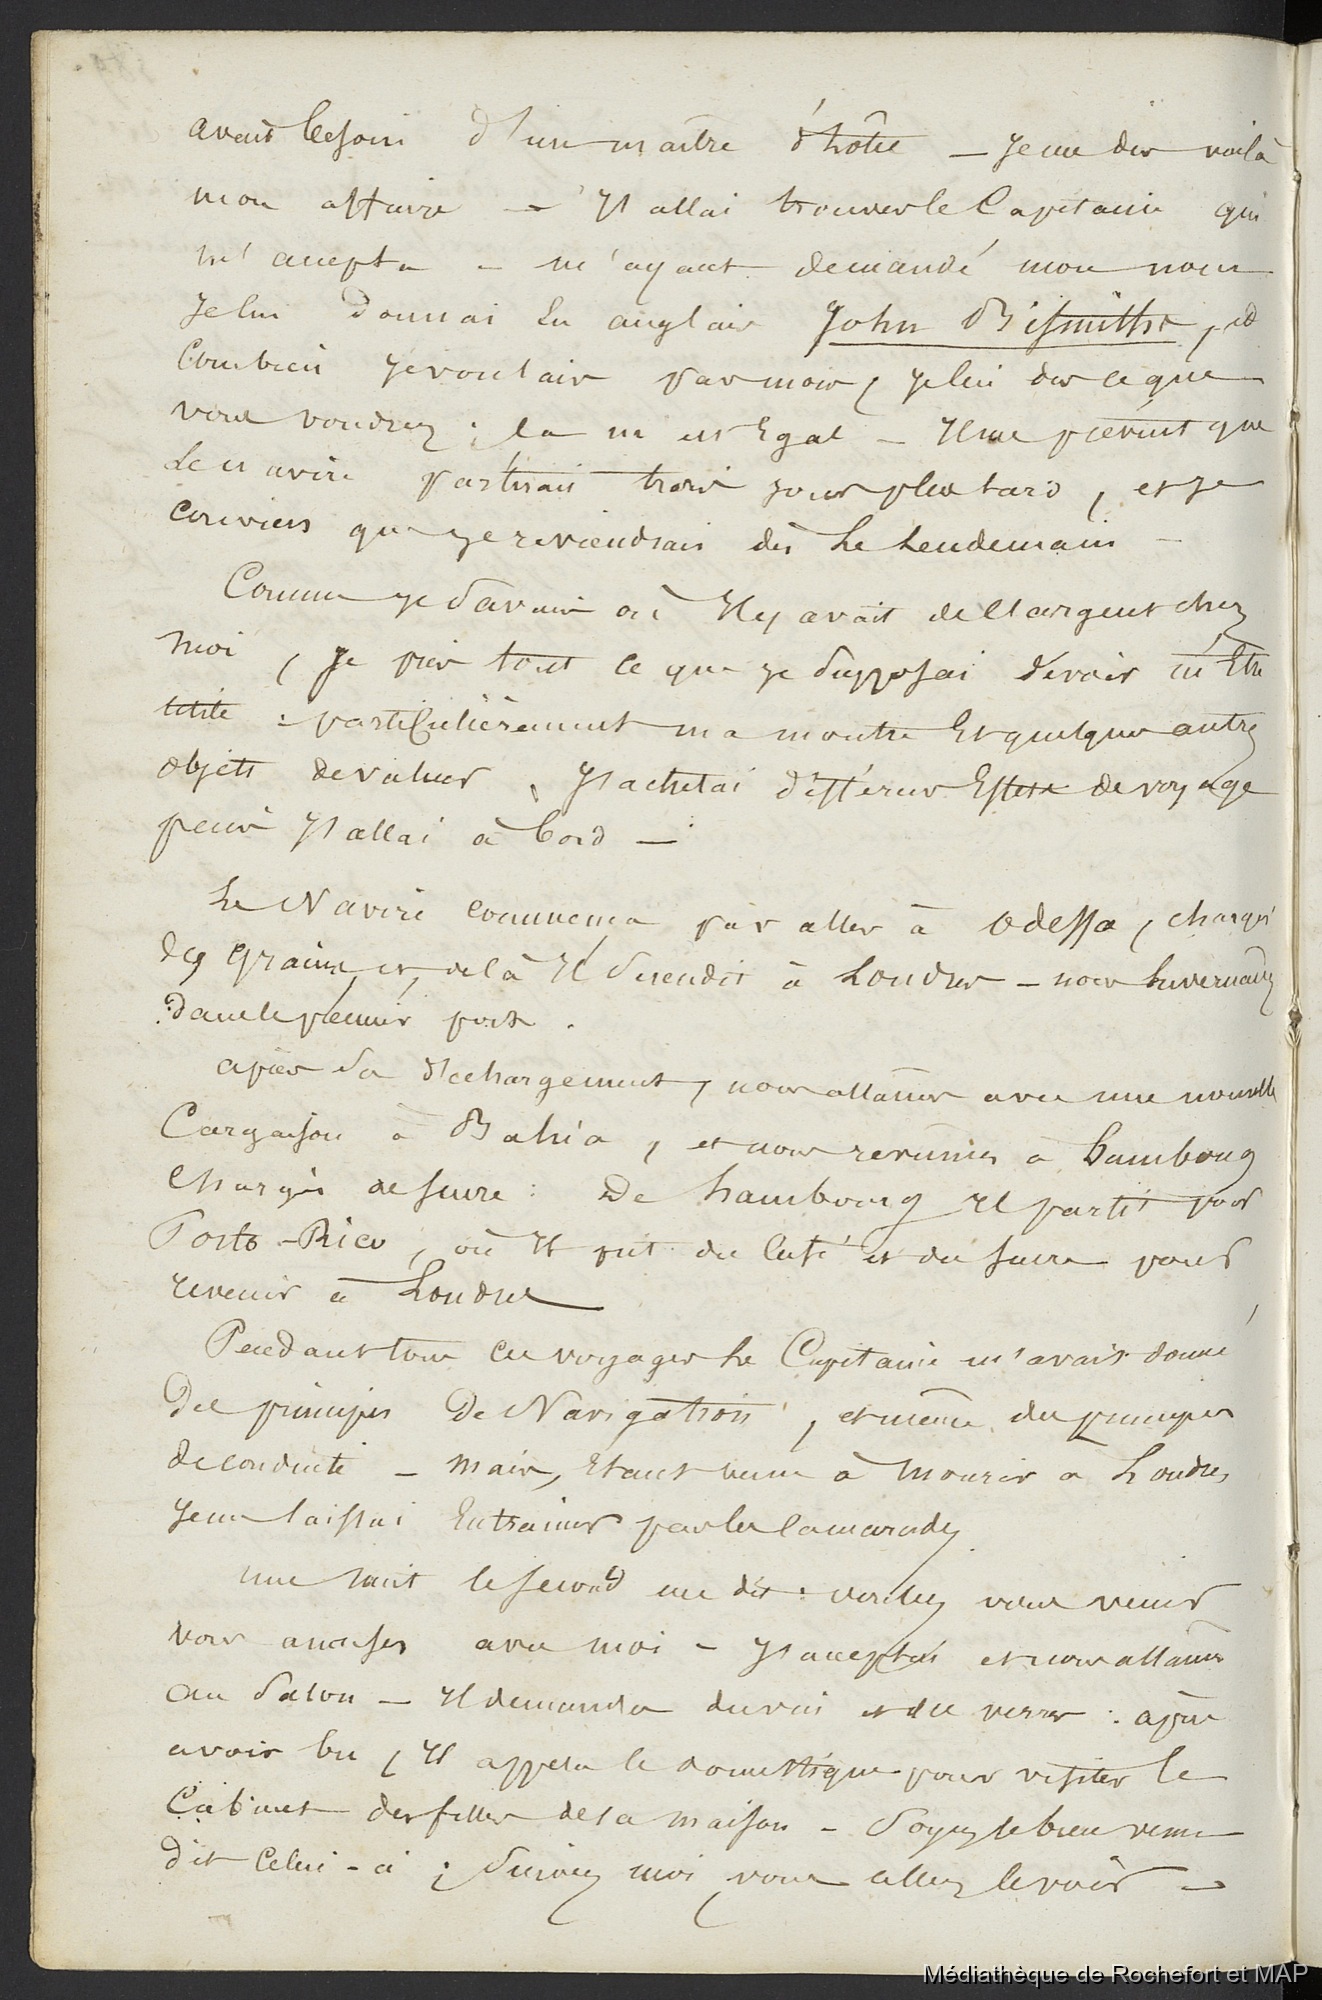 avait besoin d'un maître d'hôtel — Je me dis voilà
mon affaire — J'allai trouver le Capitaine qui
m'accepta — m'ayant demandé mon nom
Je lui donnai en anglais John Bismiths, et
Combien je voulais par mois, je lui dis ce que
vous voudrez ; la m'est Egal — Il me prévint que
Le navire partirait trois jours plus tard, et je
Conviens que je reviendrais dès Le Lendemain —
Comme je Savais où Il y avait de l'argent chez
moi, Je pris tout ce que je Supposai devoir m'Etre
utile : particulièrement ma montre Et quelques autres
objets de valeur, J'achetai différens Effets de voyage
puis J'allai à bord —
Le Navire commença par aller à Odessa, chargé
des grains, et de là Il descendit à Londres — nous hivernames
Dans le premier port.
après Sa déchargement, nous allâmes avec une nouvelle
Cargaison à Bahia, et nous revinmes à hambourg
Chargés de sucre : De hambourg Il partit pour
Porto-Rico, où Il prit du Café et du sucre pour
revenir à Londres
Pendant tous ces voyages Le Capitaine m'avait donné
Des principes De Navigation, et même des principes
de conduite — mais, Etant venu à mourir a Londres
Je me laissai Entrainer par les Camarades.
une nuit le second me dit : voulez vous venir
vous amuser avec moi — J'acceptai et nous allames
au Salon — Il demanda du vin et des verres : après
avoir bu, Il appela le domestique pour visiter le
Cabinet des filles de la maison — Soyez le bien venu
dit Celui-ci ; Suivez moi vous allez le voir —
Médiathèque de Rochefort et MAP